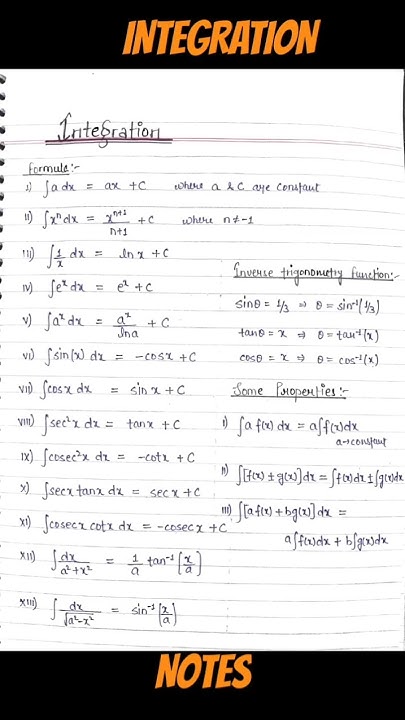 INTEGRATION
Integration
Formula:-
I) ∫a dx = ax + C where a & C are constant
II) ∫xⁿ dx = xⁿ⁺¹/n+1 + C where n≠-1
III) ∫1/x dx = ln x + C
IV) ∫eˣ dx = eˣ + C
V) ∫aˣ dx = aˣ/lna + C
VI) ∫sin(x) dx = -cosx + C
VII) ∫cosx dx = sinx + C
VIII) ∫sec²x dx = tanx + C
IX) ∫cosec²x dx = -cotx + C
X) ∫secx tanx dx = secx + C
XI) ∫cosecx cotx dx = -cosecx + C
XII) ∫dx/a²+x² = 1/a tan⁻¹[x/a]
XIII) ∫dx/√a²-x² = sin⁻¹[x/a]
Inverse trigonometry function:-
sinθ = 1/3 ⇒ θ = sin⁻¹(1/3)
tanθ = x ⇒ θ = tan⁻¹(x)
cosθ = x ⇒ θ = cos⁻¹(x)
Some Properties:-
I) ∫a f(x) dx = a∫f(x)dx
a→constant
II) ∫[f(x) ± g(x)]dx = ∫f(x)dx ± ∫g(x)dx
III) ∫[af(x) + bg(x)]dx =
a∫f(x)dx + b∫g(x)dx
NOTES